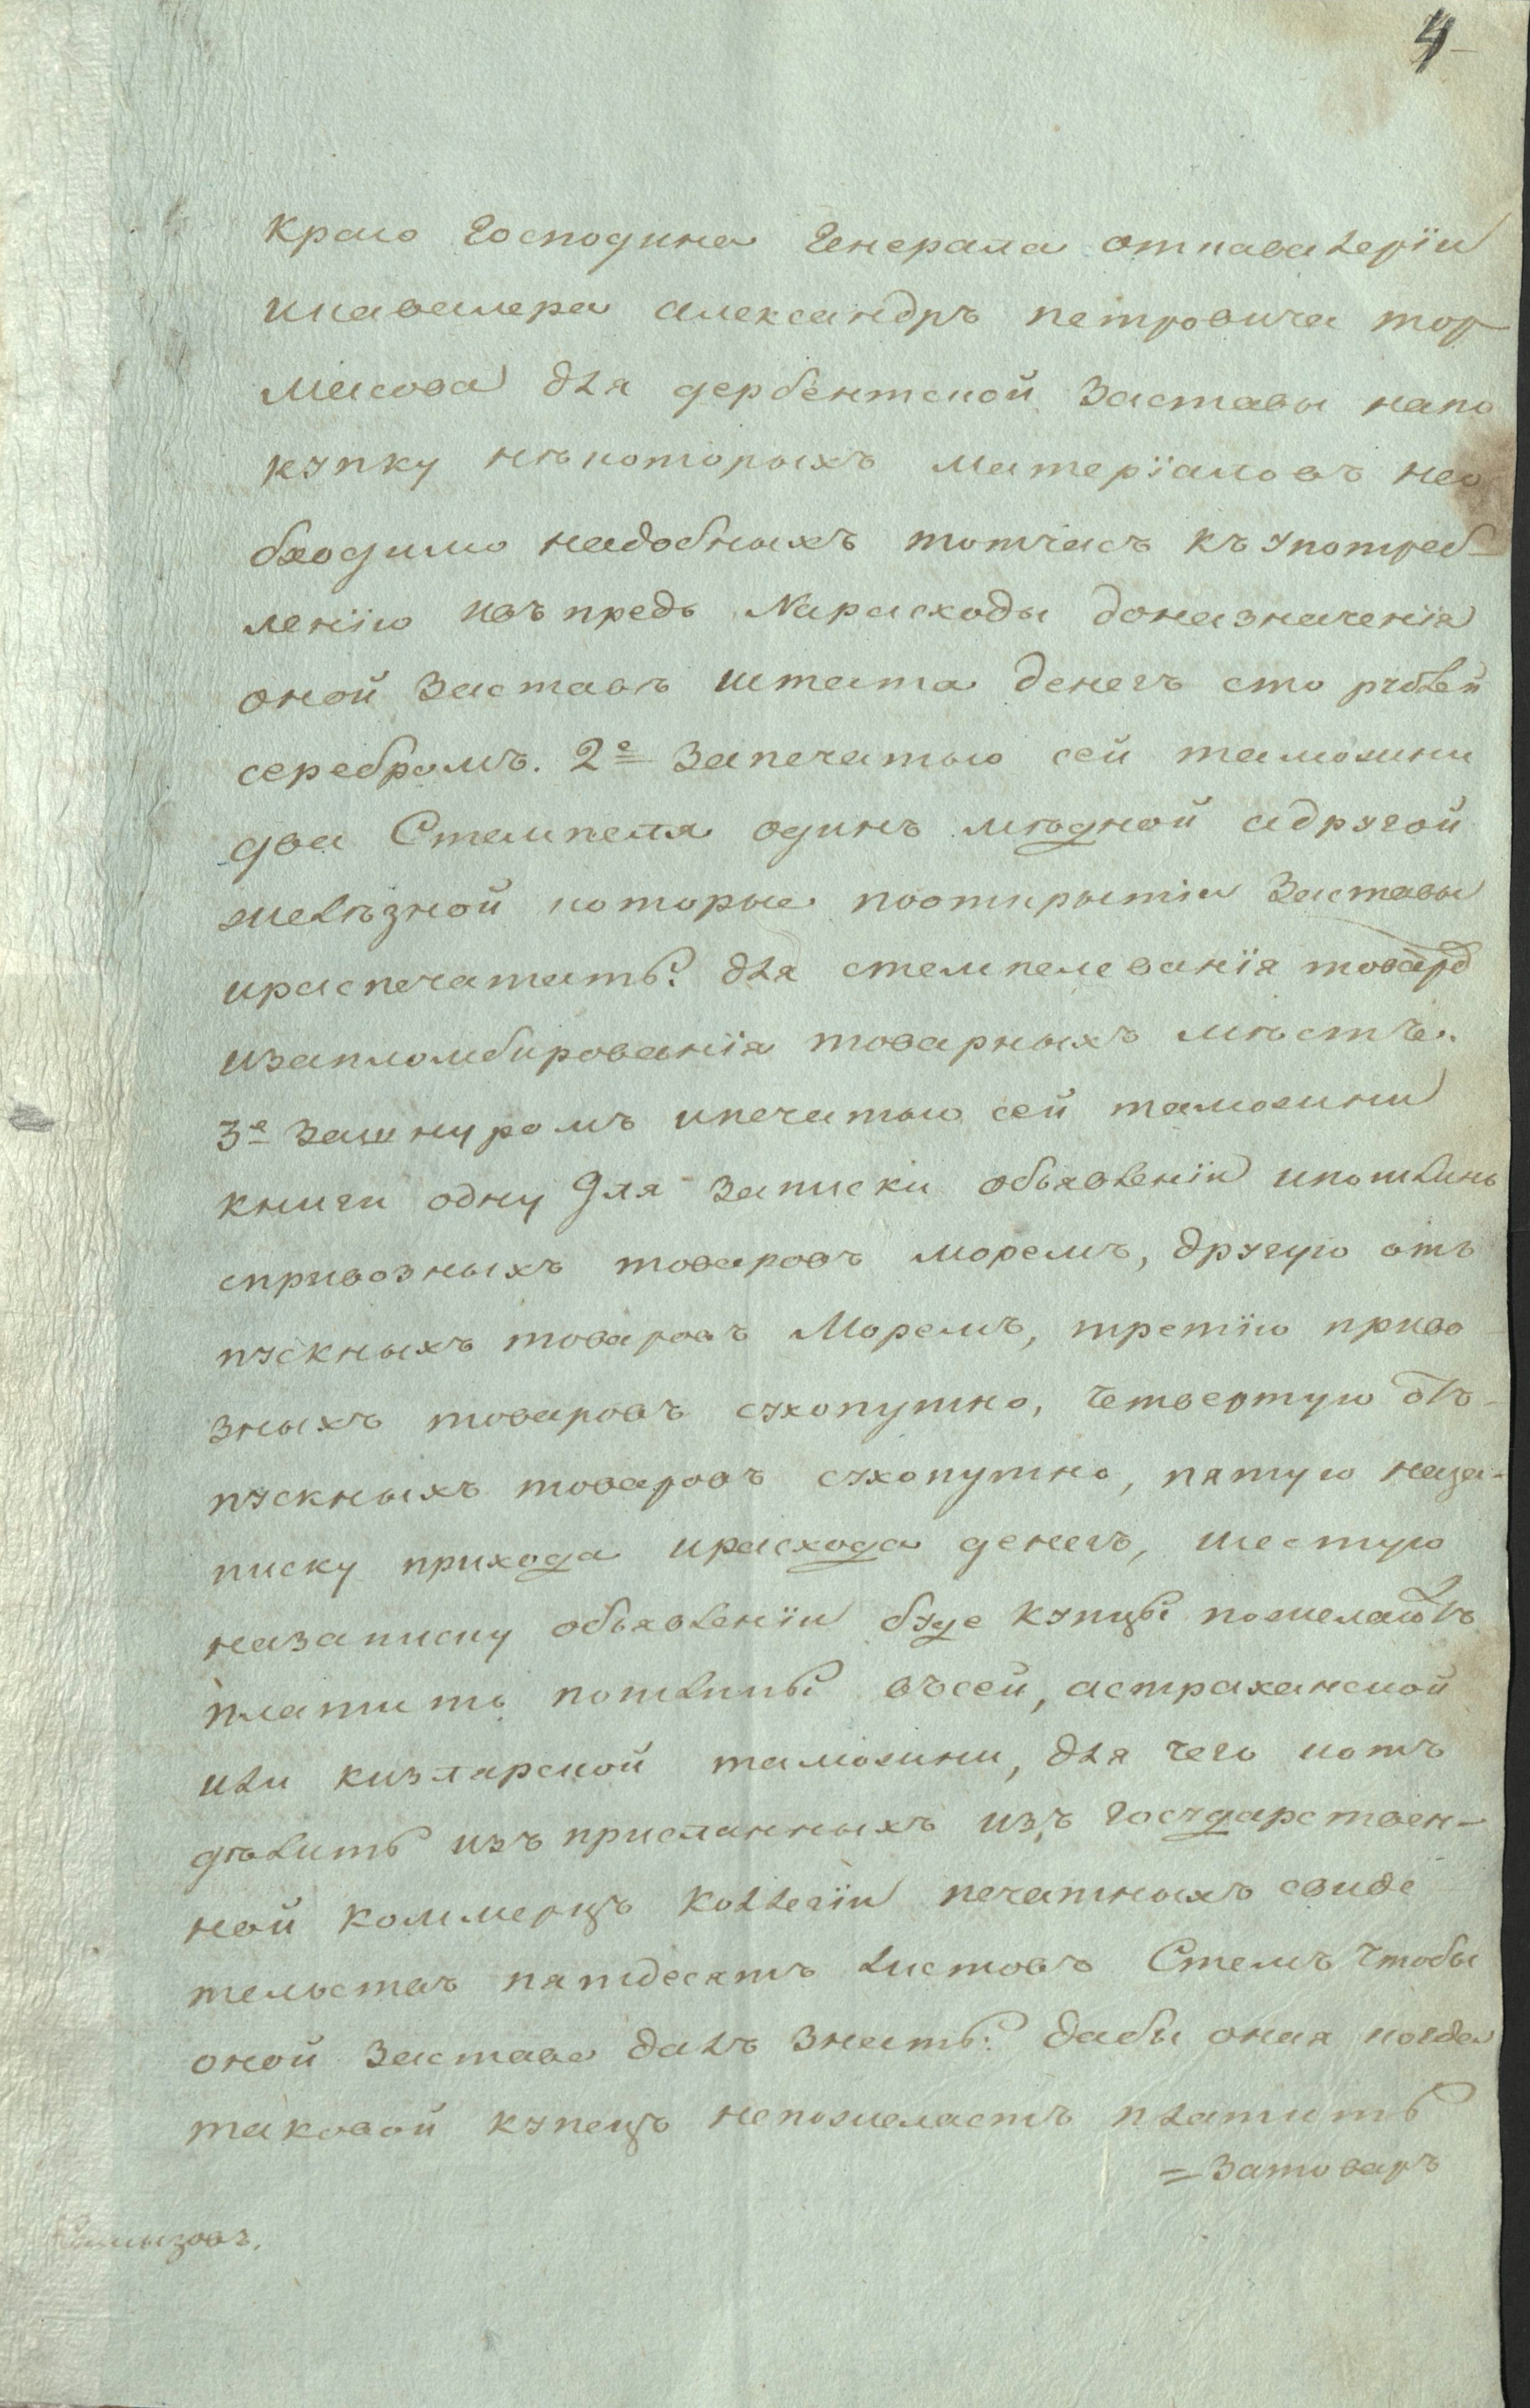 4
краю Господина Генерала откавалерїи
икавалера александръ петровича тор
масова для дербентской заставы напо
купку нѣкоторыхъ матерїаловъ нео
бходимо надобныхъ тотчасъ къ употреб-
ленїю ивъ предь Нарасходы доназначенїя
оной заставѣ штата денегъ сто рублей
серебромъ. 2е Запечатью сей таможни
два Стемпеля одинъ мѣдной адругой
желѣзной которые пооткрытіи Заставы
ираспечатать: для стемпелеванїя товаръ
изапломбированїя товарныхъ мѣстъ.
3е Зашнуромъ ипечатью сей таможни
книги одну Для записки объявленїи ипошлинъ
спривозныхъ товаровъ моремъ, другую отъ
пускныхъ товаровъ Моремъ, третїю приво
зныхъ товаровъ сухопутно, четвертую отъ-
пускныхъ товаровъ сухопутно, пятую наза-
писку прихода ирасхода денегъ, шестую
назаписку объявленїи буде купцы пожелаютъ
платить пошлины въсей, астраханской
или кизлярской таможни, для чего иотъ
дѣлить изъ присланныхъ изъ государствен-
ной коммерцъ коллегїи печатныхъ свиде
тельствъ пятдесятъ листовъ Стемъ чтобы
оной заставе далъ знать: дабы оная когда
таковой купецъ непожелаетъ платить
=Затоваръ